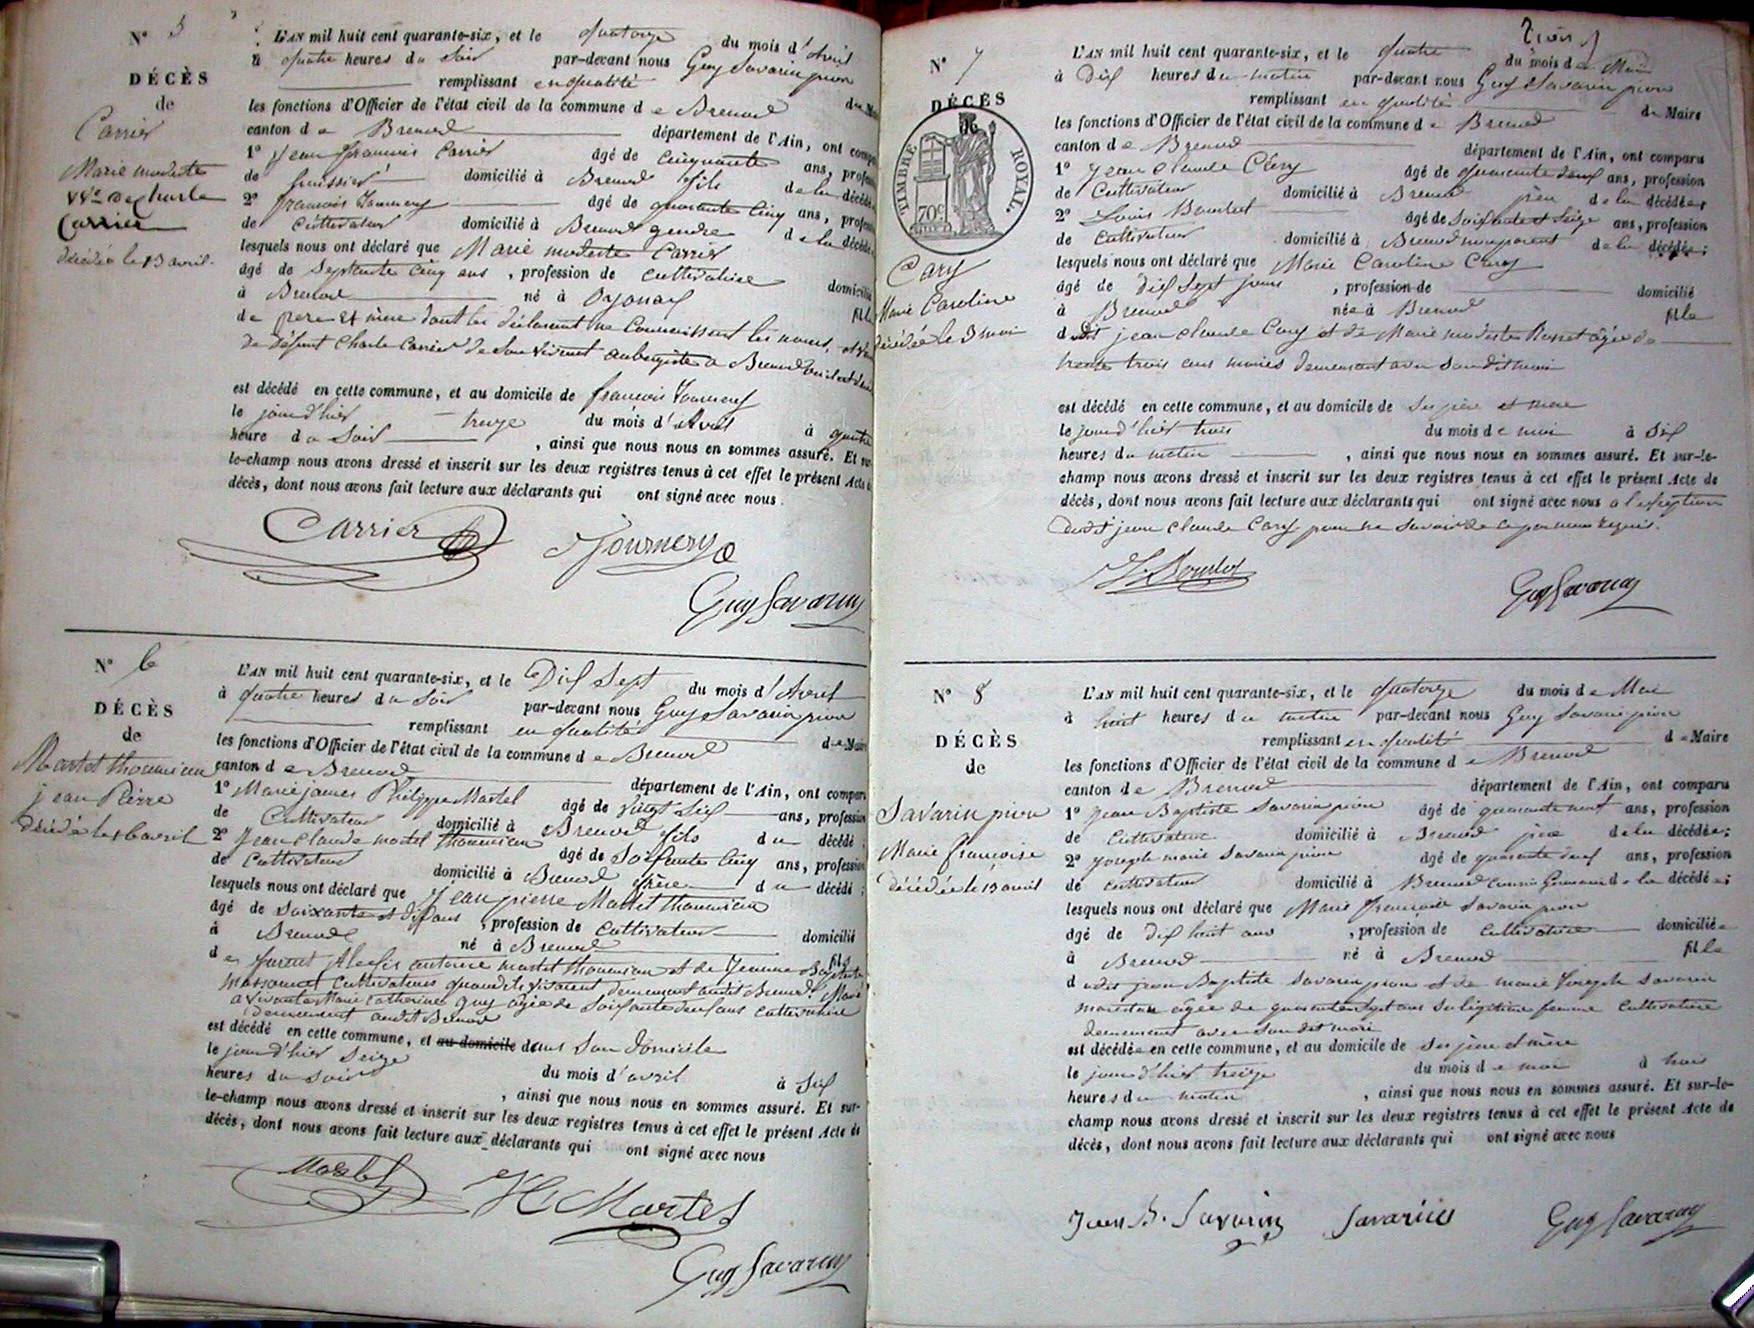 N° 5
DÉCÈS
de
Carrier
Marie modeste
Vve de charle
Carrier
décédée le 13 avril.
L'AN mil huit cent quarante-six, et le quatorze du mois d'avril
à quatre heures du soir par-devant nous Guy Savarin pion
remplissant en qualité du Maire
les fonctions d'Officier de l'état civil de la commune de Brenod
canton de Brenod département de l'Ain, ont comparu
1° Jean françois Carrier âgé de cinquante ans, profession
de huissier domicilié à Brenod fils de la décédée
2° françois Tournery âgé de quarante cinq ans, profession
de cultivateur domicilié à Brenod gendre de la décédée
lesquels nous ont déclaré que Marie modeste Carrier
âgé de septante cinq ans, profession de cultivatrice domicilié
à Brenod né à Oyonax fille
de père et mère dont les déclarant ne connaissent les noms, et
de défunt Charle Carrier de son vivant aubergiste a Brenod
est décédé en cette commune, et au domicile de françois Tournery
le jour d'hier treize du mois d'Avril à quatre
heure du soir, ainsi que nous nous en sommes assuré. Et sur-
le-champ nous avons dressé et inscrit sur les deux registres tenus à cet effet le présent Acte de
décès, dont nous avons fait lecture aux déclarants qui ont signé avec nous.
Carrier Tournery
Guy Savarin
N° 6
DÉCÈS
de
Martel thoumian
jean Pierre
décédé le 16 avril
L'AN mil huit cent quarante-six, et le Dix Sept du mois d'Avril
à quatre heures du Soir par-devant nous Guy Savarin pion
remplissant en qualité de Maire
les fonctions d'Officier de l'état civil de la commune de Brenod
canton de Brenod département de l'Ain, ont comparu
1° Marie james Philippe Martel âgé de vingt six ans, profession
de Cultivateur domicilié à Brenod fils du décédé;
2° Jean Claude martel thoumian âgé de Soixante cinq ans, profession
de Cultivateur domicilié à Brenod frère du décédé;
lesquels nous ont déclaré que Jean pierre Martel thoumian
âgé de soixante et dix ans, profession de cultivateur domicilié
à Brenod né à Brenod fils
de furent Alexis antoine martel thoumian et de Jeanne Baptiste
Massonnet cultivateurs quand ils vivaient demeurant audit Brenod. Marié
a vivante Marie Catherine Guy agée de Soixante deux ans cultivatrice
demeurant audit Brenod
est décédé en cette commune, et au domicile dans Son Domicile
le jour d'hier Seize du mois d'avril à Six
heures du Soir, ainsi que nous nous en sommes assuré. Et sur-
le-champ nous avons dressé et inscrit sur les deux registres tenus à cet effet le présent Acte de
décès, dont nous avons fait lecture aux déclarants qui ont signé avec nous
Martel H. Martel
Guy Savarin
trois
N° 7
DÉCÈS
TIMBRE ROYAL.
70c
Cary
Marie Caroline
décédée le 3 mai
L'AN mil huit cent quarante-six, et le quatre du mois de Mai
à Dix heures du matin par-devant nous Guy Savarin pion
remplissant en qualité de Maire
les fonctions d'Officier de l'état civil de la commune de Brenod
canton de Brenod département de l'Ain, ont comparu
1° Jean Claude Cary âgé de quarante deux ans, profession
de Cultivateur domicilié à Brenod père de la décédée;
2° Louis Bourlot âgé de Soixante et Seize ans, profession
de Cultivateur domicilié à Brenod non parent de la décédée;
lesquels nous ont déclaré que Marie Caroline Cary
âgé de dix Sept jours, profession de domicilié
à Brenod née à Brenod fille
dudit jean claude Cary et de Marie modeste Perret âgée de
trente trois ans mariés demeurant avec son dit mari
est décédé en cette commune, et au domicile de Ses père et mère
le jour d'hier trois du mois de mai à Dix
heures du matin, ainsi que nous nous en sommes assuré. Et sur-le-
champ nous avons dressé et inscrit sur les deux registres tenus à cet effet le présent Acte de
décès, dont nous avons fait lecture aux déclarants qui ont signé avec nous a l'exception
dudit jean claude Cary pour ne Savoir de ce par nous requis.
L. Bourlot
Guy Savarin
N° 8
DÉCÈS
de
Savarin pion
Marie françoise
décédée le 13 avril
L'AN mil huit cent quarante-six, et le quatorze du mois de Mai
à huit heures du matin par-devant nous Guy Savarin pion
remplissant en qualité de Maire
les fonctions d'Officier de l'état civil de la commune de Brenod
canton de Brenod département de l'Ain, ont comparu
1° Jean Baptiste Savarin pion âgé de quarante neuf ans, profession
de Cultivateur domicilié à Brenod père de la décédée;
2° joseph marie Savarin pion âgé de quarante deux ans, profession
de Cultivateur domicilié à Brenod cousin Germain de la décédée;
lesquels nous ont déclaré que Marie françoise Savarin pion
âgé de dix huit ans, profession de Cultivatrice domiciliée
à Brenod né à Brenod fille
dudit jean Baptiste Savarin pion et de marie Joseph Savarin
maréchal âgée de quarante sept ans Sa légitime femme Cultivatrice
demeurant avec Son dit mari
est décédée en cette commune, et au domicile de Ses père et mère
le jour d'hier treize du mois de mai à trois
heures du matin, ainsi que nous nous en sommes assuré. Et sur-le-
champ nous avons dressé et inscrit sur les deux registres tenus à cet effet le présent Acte de
décès, dont nous avons fait lecture aux déclarants qui ont signé avec nous
Jean B. Savarin Savarin Guy Savarin